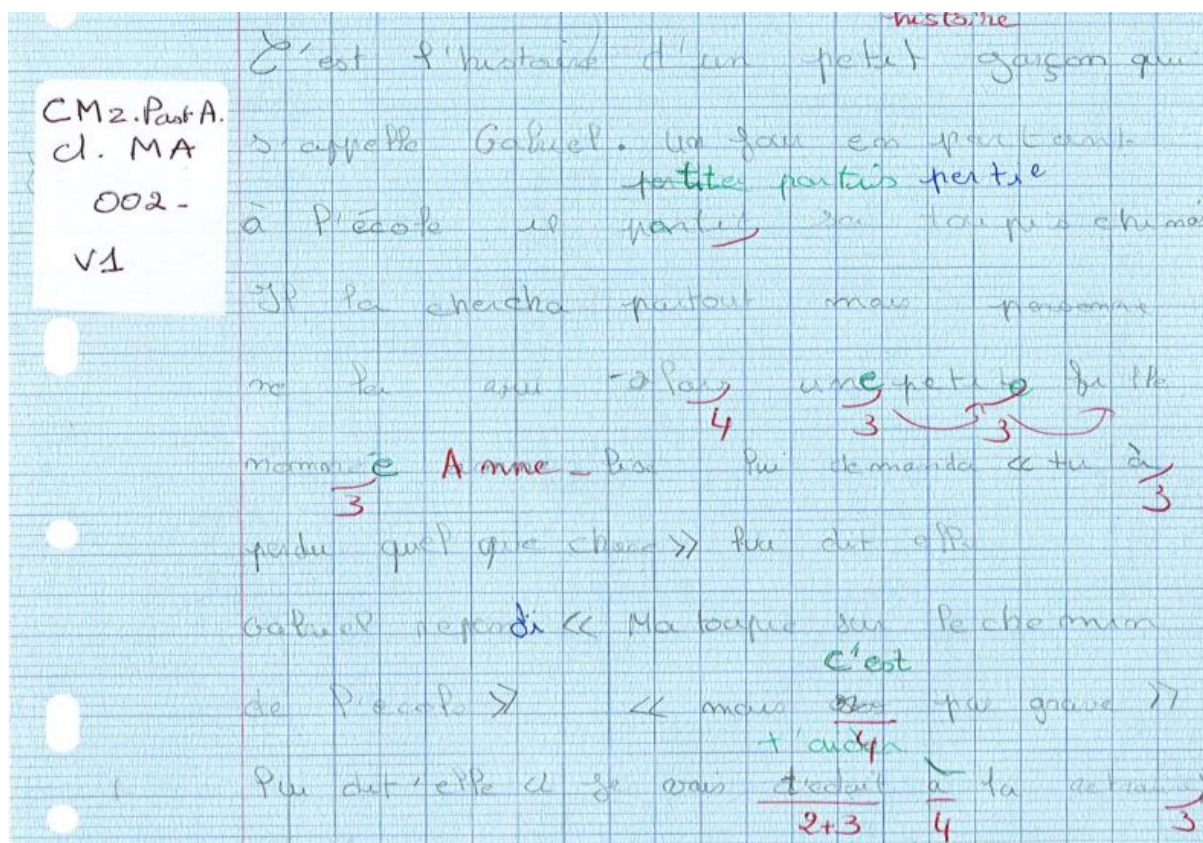 histoire
C'est l'histoire d'un petit garçon qui
CM2.Past A.
cl. MA
002-
V1
s'appelle Gabriel. Un jour en partant
pertites partais pertre
à l'école il sa toupie
Il la chercha partout mais personne
ne la une petite fille
4 3 3
nommé Anne-lise lui demanda « tu à
3 3
perdu quel que chose » lui dit elle
Gabriel repondi « Ma toupie sur le chemin
c'est
de l'école » « mais pas grave »
4
t'aider
lui dit'elle « je vais à la
2+3 4 3